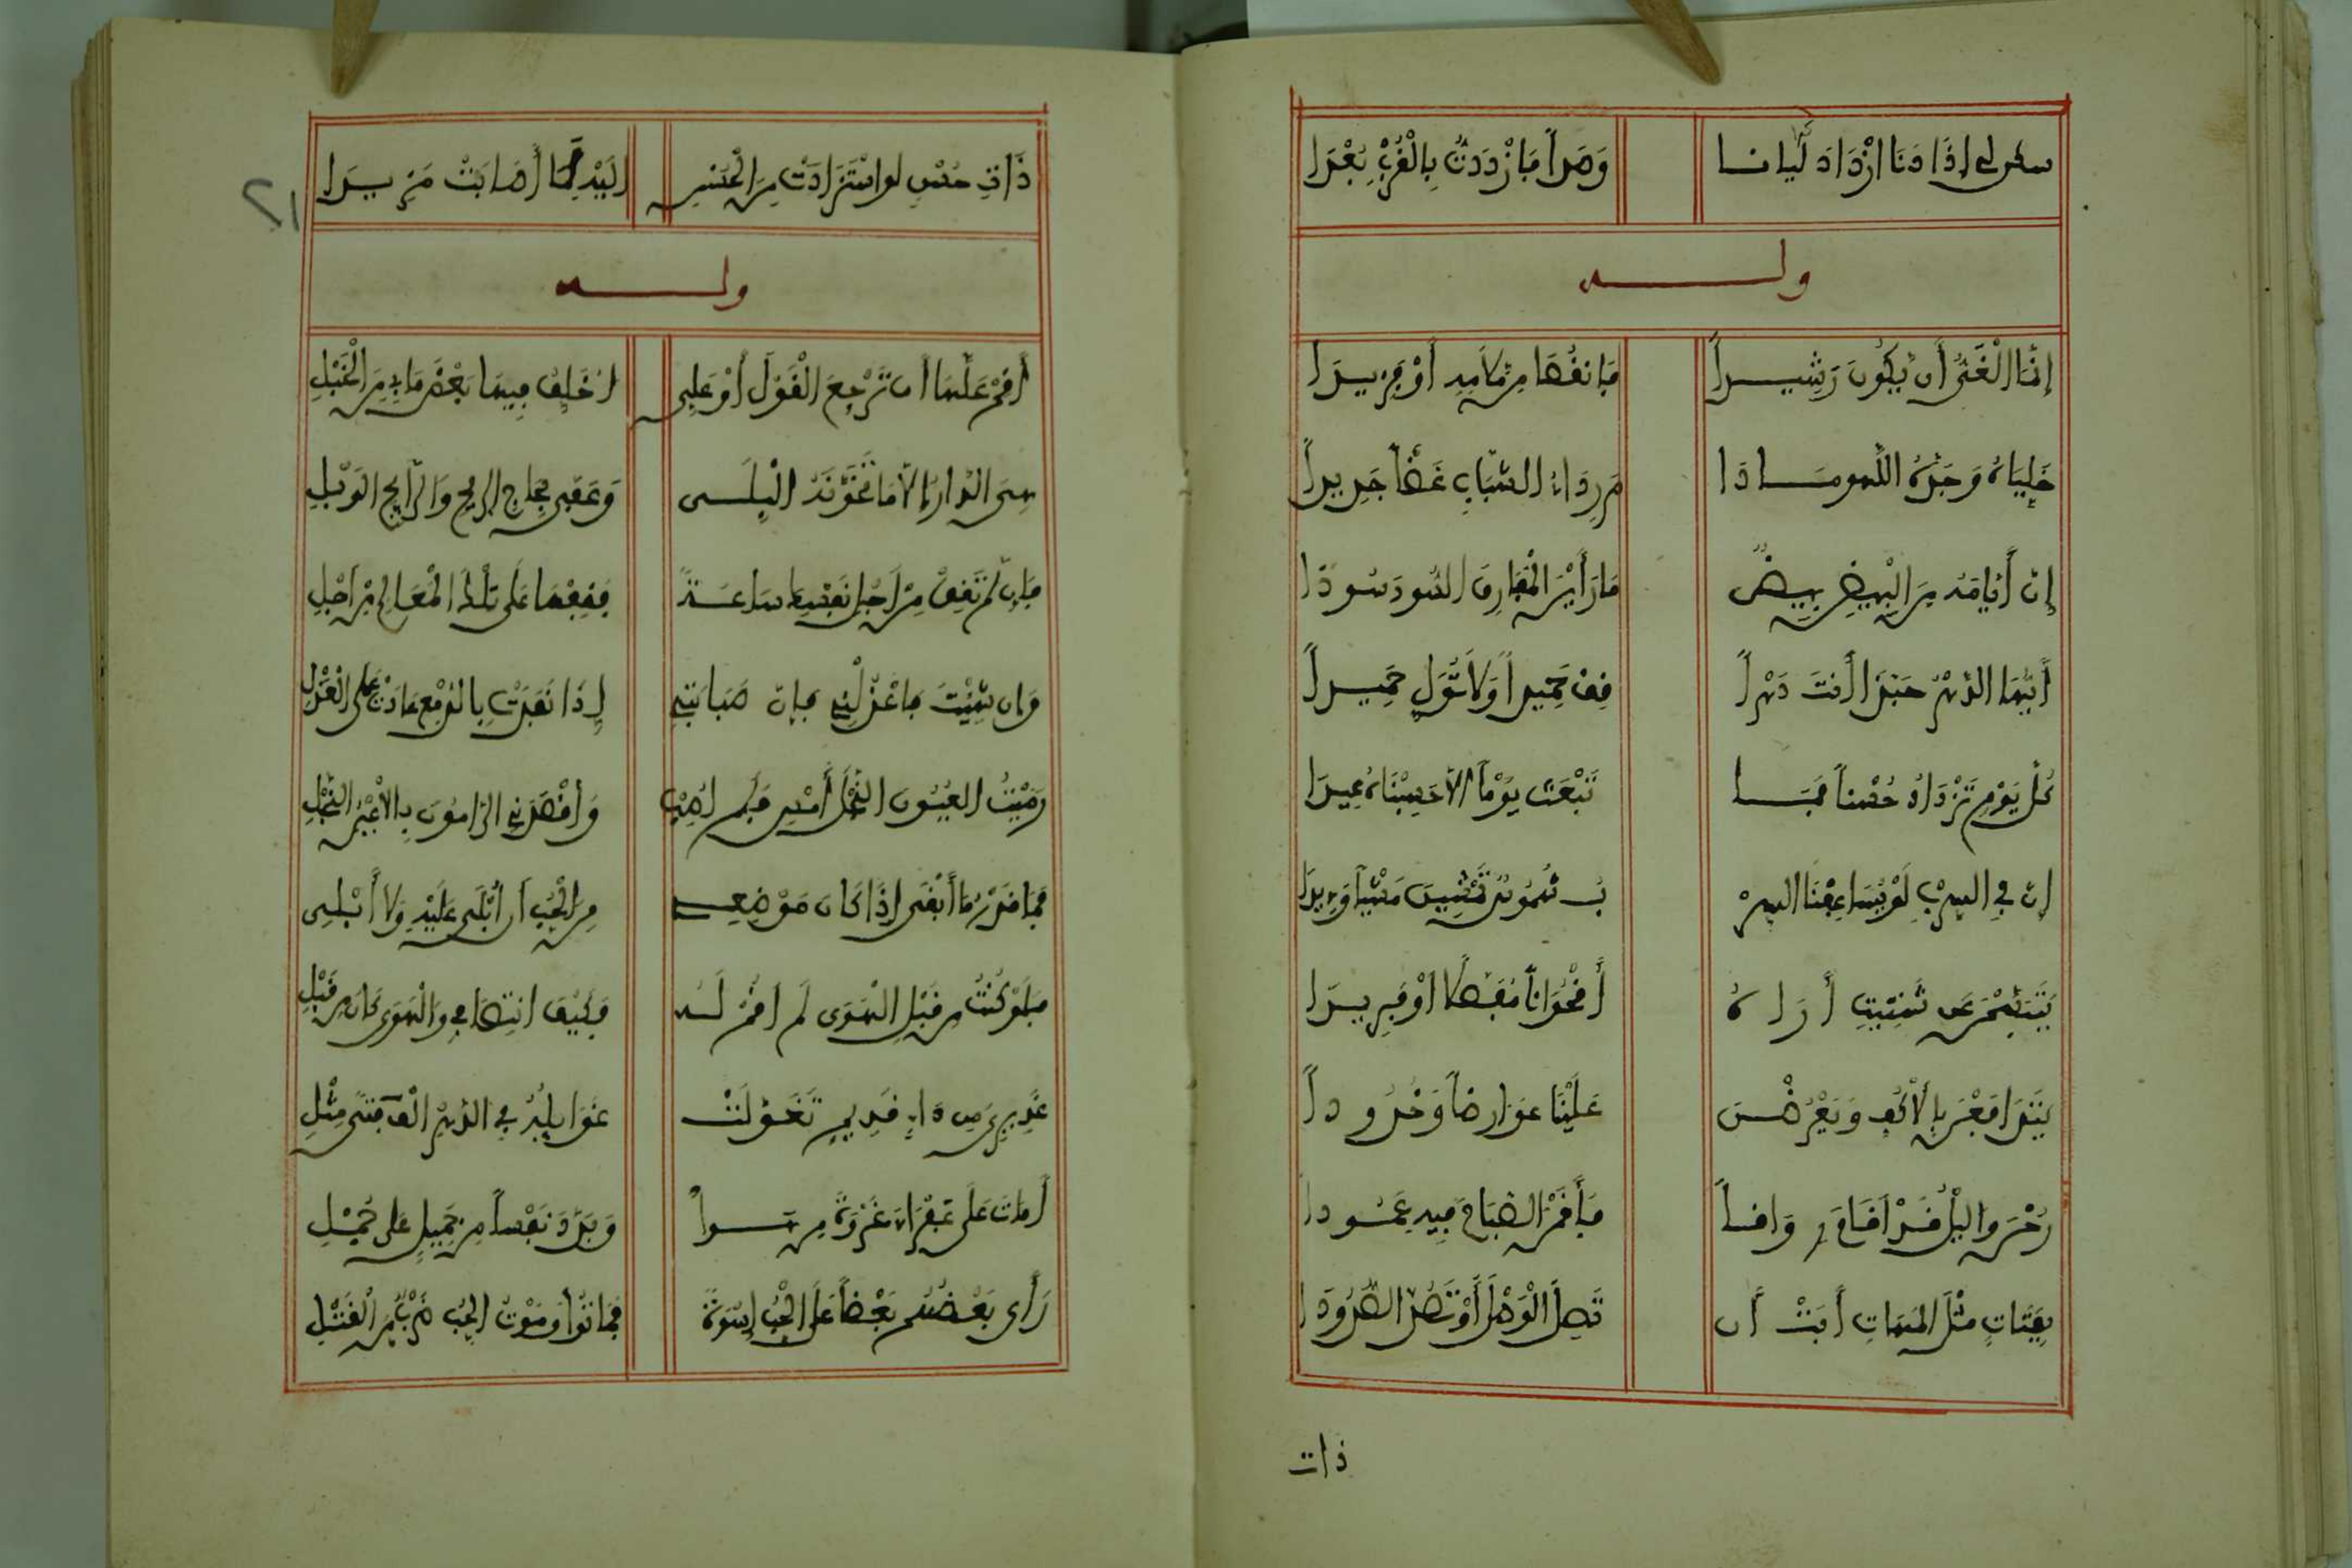 سكن لي إذا دنا ازداد ليانا وصدا فازددت بالقرب بعدا
ولــه
إنما الغي أن يكون رشيدا فانقصا من ملامه أو فزيدا
خلياه وجدة اللهو ما دا م رداء الشباب غضا جديدا
إن أيامه من البيض بيض ما رأين المفارق السود سودا
أيها الدهر حبذا أنت دهرا قف حميدا ولا تول حميدا
كل يوم تزداد حسنا فما تبعث يوما إلا حسبناه عيدا
إن في السرب لو يساعفنا السر ب شموس تمشين مشيا وئيدا
يتبسمن عن شتيت أراه أقحوانا مفصلا أو فريدا
يتدافعن بالأكف ويعرضن علينا عوارضا وخدودا
رحن والليل قد أقام رواقا فأقمن الصباح فيه عمودا
بفتاة مثل المهاة أبت أن تصل الوصل أو تصد الصدودا
ذات
ذات حسن لو استزادت من الحسن إليه لما أصابت مزيدا
٢١
ولــه
أقم علها أن ترجع القول أو علي أخلف فيها بعض ما بي من الخبل
وعفى عجاج الريح والرايح الوبل
فإن لم تقف من أجل نفسك ساعة فقفها على تلك المعالم من أجل
وإن شئت فاعذلني فإن صبابتي إذا نفدت بالدمع عادت على العذل
رميت العيون النجل أمس فلم أصب وأقصدني الرامون بالأعين النجل
فما قدر ما أبقى إذا كان موضعي من الحب أن أبلى عليه ولا أبلي
فلو كنت من قبل الهوى لم أقم له فكيف انتصافي والهوى كان من قبل
عذيري من داء قديم تغولت غوايله في الدهر ألف فتى مثلي
أمات على عفراء عروة من هوا وبرد نفسا من جميل على جمل
رأى بعضهم بعضا على الحب إسوة فماتوا وموت الحب ضرب من القتل